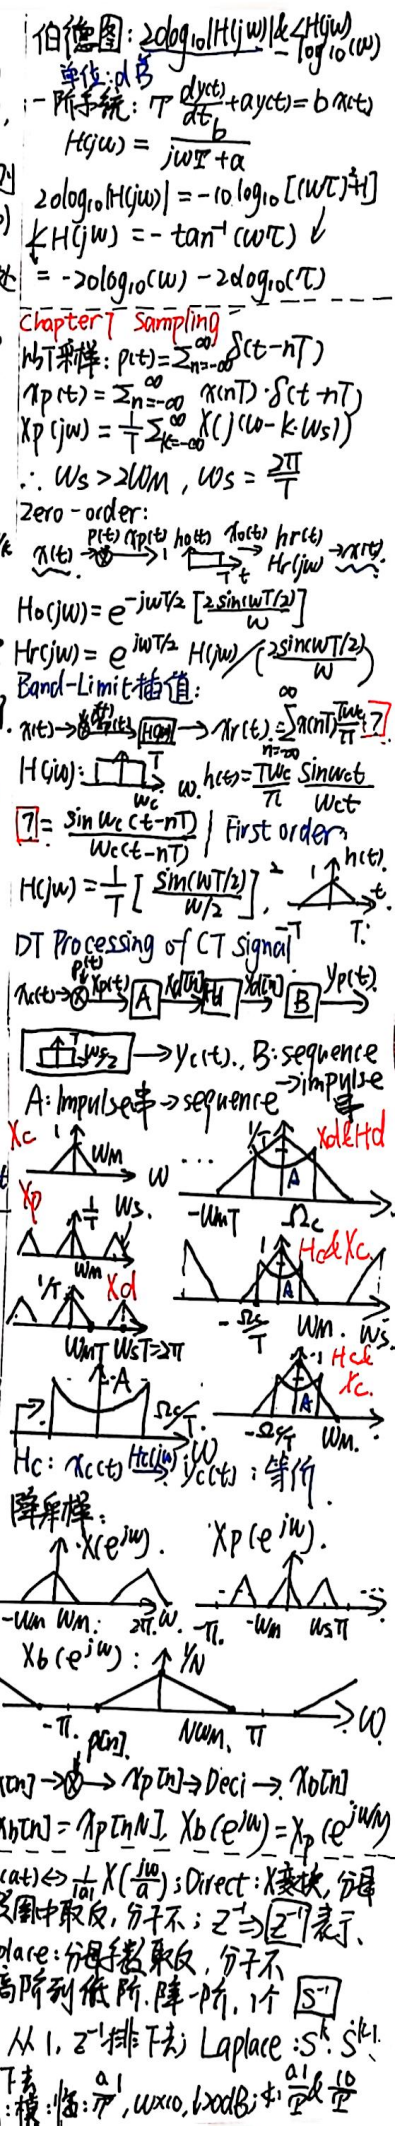 伯德图: 20log₁₀|H(jω)| & ∠H(jω)
log₁₀(ω)
单位: dB
一阶系统: τ dy(t)/dt + ay(t) = b x(t)
H(jω) = b/(jωτ+a)
20log₁₀|H(jω)| = -10log₁₀[(ωτ)²+1]
∠H(jω) = -tan⁻¹(ωτ)
= -20log₁₀(ω) - 20log₁₀(τ)
Chapter 7 Sampling
采样: p(t) = Σ_{n=-∞}^{∞} δ(t-nT)
xp(t) = Σ_{n=-∞}^{∞} x(nT)·δ(t-nT)
Xp(jω) = 1/T Σ_{k=-∞}^{∞} X(j(ω-k·ωs))
∴ ωs > 2ωM, ωs = 2π/T
Zero-order:
p(t) xp(t) 1 ho(t) xo(t) hr(t)
x(t) → ⊗ → T t → Hr(jω) → x(t)
Ho(jω) = e^{-jωT/2} [2sin(ωT/2)/ω]
Hr(jω) = e^{jωT/2} H(jω)/(2sin(ωT/2)/ω)
Band-Limit插值:
x(t) → ⊗ → H(jω) → xr(t) = Σ_{n=-∞}^{∞} x(nT) Tωc/π [?]
H(jω): T ωc ω. h(t) = Tωc/π sinωct/ωct
[?] = sinωc(t-nT)/ωc(t-nT) | First order:
H(jω) = 1/T [sin(ωT/2)/ω/2]², 1 h(t) -T T t
DT Processing of CT signal
p(t)
xc(t) → ⊗ xp(t) → A xd[n] → Hd yd[n] → B yp(t) →
T ωs/2 → yc(t)., B: sequence → impulse串
A: Impulse串 → sequence
Xc 1 ωM ω
1/T Xd&Hd A -ωMT Ωc
Xp 1/T ωs. ωM
1 Hc&Xc A -Ωc/T ωM. ωs.
1/T Xd ωMT ωsT=2π
1 Hc& Xc. A -Ωc/T ωM.
A Ωc/T. ω
Hc: xc(t) Hc(jω) → yc(t): 等价
降采样:
X(e^{jω}). Xp(e^{jω}).
-ωm ωm. 2π. ω. -π. -ωm ωs π
Xb(e^{jω}): 1/N
-π. Nωm. π ω
p[n].
x[n] → ⊗ → xp[n] → Deci → xb[n]
xb[n] = xp[nN], Xb(e^{jω}) = Xp(e^{jω/N})
(at) ⇔ 1/|a| X(jω/a); Direct: X变换, 分母
图中取反, 分子不; z⁻¹ ⇒ [z⁻¹]表示、
place: 分母系数取反, 分子不
高阶到低阶. 降一阶, 1个 [S⁻¹]
从1, z⁻¹排下去; Laplace: S^k. S^{k-1}、
下去